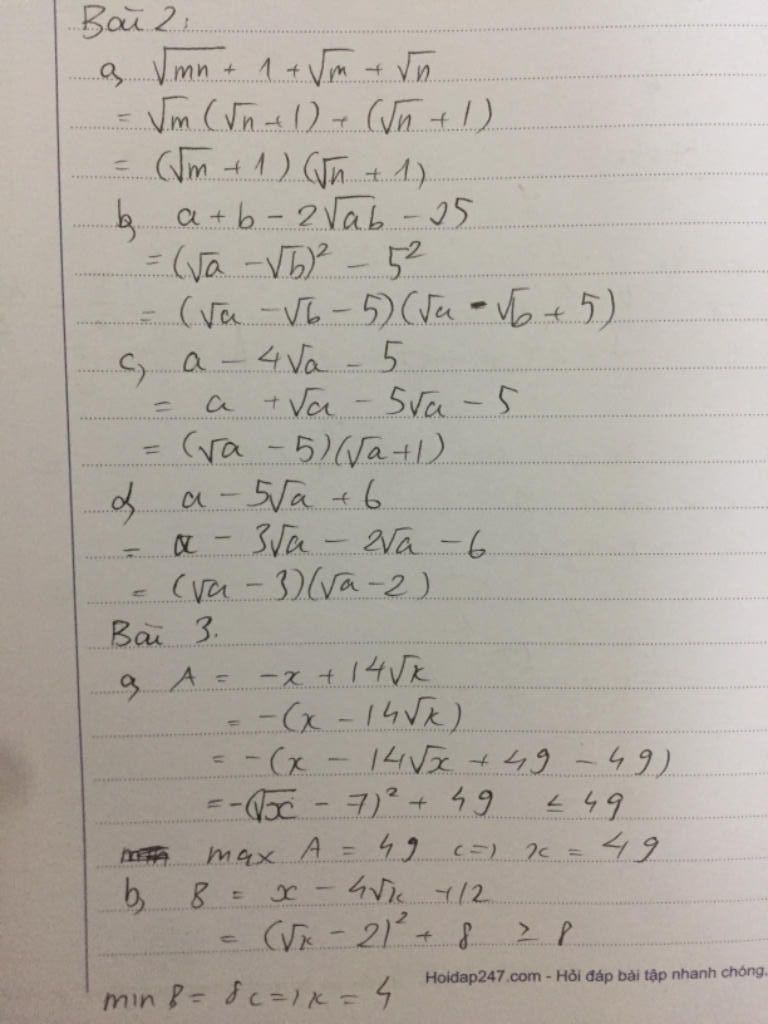 Bài 2:
a, √mn + 1 + √m + √n
= √m (√n + 1) + (√n + 1)
= (√m + 1) (√n + 1)
b, a + b - 2√ab - 25
= (√a - √b)² - 5²
= (√a - √b - 5)(√a - √b + 5)
c, a - 4√a - 5
= a + √a - 5√a - 5
= (√a - 5)(√a + 1)
d, a - 5√a + 6
= a - 3√a - 2√a - 6
= (√a - 3)(√a - 2)
Bài 3.
a, A = -x + 14√x
= -(x - 14√x)
= -(x - 14√x + 49 - 49)
= -(√x - 7)² + 49 ≤ 49
max A = 49 <=> x = 49
b, B = x - 4√x + 12
= (√x - 2)² + 8 ≥ 8
Hoidap247.com - Hỏi đáp bài tập nhanh chóng,
min B = 8 <=> x = 4